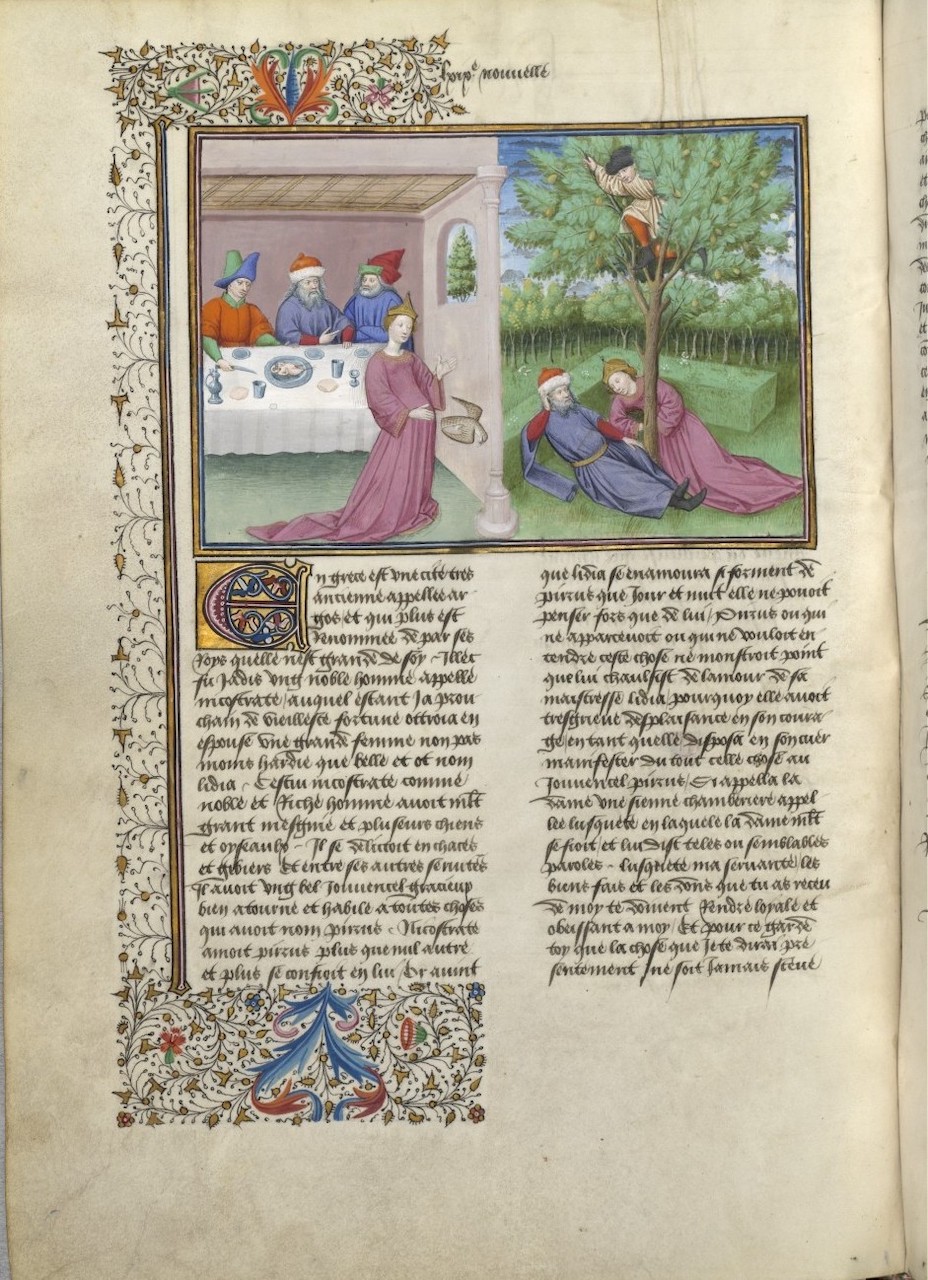 nouvelle
En grece est une cite tres
ancienne appellee ar
gos et qui plus est
Renommee de par ses
Roys quelle nest grande de soy Illec
fu Jadis ung noble homme appelle
nicostrate auquel estant Ja prou
chain de vieillesse fortune ottroia en
espouse une grande femme non pas
moins hardie que belle et ot nom
lidia Cestui nicostrate comme
noble et Riche homme avoit mlt
grant mesgnie et plusieurs chiens
et oyseaulx Il se delitoit en chaces
et gibiers Et entre ses autres servites
Il avoit ung bel Jouvencel gracieux
bien atourne et habile a toutes choses
qui avoit nom pirrus Nicostrate
amoit pirrus plus que nul autre
et plus se confioit en lui Or avint
que lidia se enamoura si forment de
pirrus que Jour et nuit elle ne povoit
penser fors que de lui Pirrus ou qui
ne appercevoit ou qui ne vouloit en
tendre ceste chose ne monstroit point
que lui chaulsist de lamour de sa
maistresse lidia pourquoy elle avoit
tresgrieve desplaisance en son coura
ge en tant quelle disposa en son cuer
manifester du tout celle chose au
Jouvencel pirrus Si appella la
dame une sienne chamberiere appel
lee lusquete en laquele la dame mlt
se fioit et lui dist teles ou semblables
paroles lusquete ma servante les
biens fais et les dons que tu as receu
de moy te doivent Rendre loyale et
obeissant a moy Et pour ce garde
toy que la chose que Je te dirai pre
sentement ne soit Jamais sceue